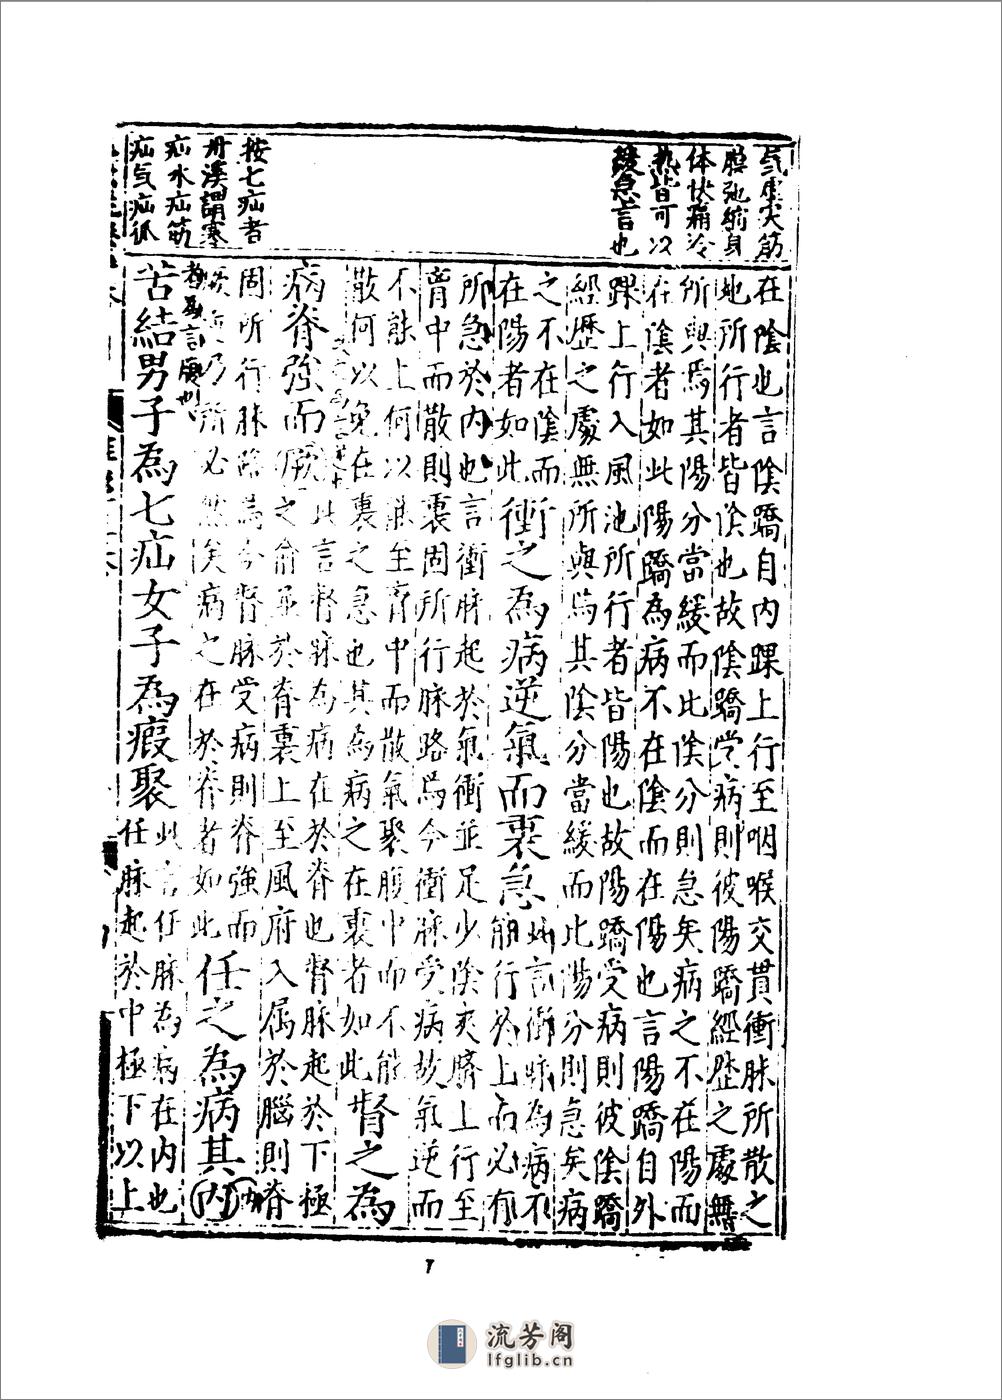 気虚大筋
膜弛緩身
体快痛冷
熱皆可以
緩急言也
按七疝者
丹溪謂寒
疝水疝筋
疝気疝狐
在陰也言陰蹻自内踝上行至咽喉交貫衝脉所散之
地所行者皆陰也故陰蹻受病則彼陽蹻經歷之處無
所與焉其陽分當緩而此陰分則急矣病之不在陽而
在陰者如此陽蹻為病不在陰而在陽也言陽蹻自外
踝上行入風池所行者皆陽也故陽蹻受病則彼陰蹻
經歷之處無所與焉其陰分當緩而此陽分則急矣病
之不在陰而
在陽者如此
衝之為病逆氣而裏急
此言衝脉為病不
行於上而必有
所急於内也言衝脉起於氣衝並足少陰夾臍上行至
胷中而散則裏固所行脉路焉今衝脉受病故氣逆而
不能上何以至胷中而散氣聚腹中而不能
散何以免在裏之急也其為病之在裏者如此
督之為
病脊強而厥
此言督脉為病在於脊也督脉起於下極
之俞並於脊裏上至風府入属於腦則脊
固所行脉路焉今督脉受病則脊強而
所必然矣病之在於脊者如此
任之為病其内
苦結男子為七疝女子為瘕聚
此言任脉為病在内也
任脉起於中極下以上
7
流芳阁
lfglib.cn